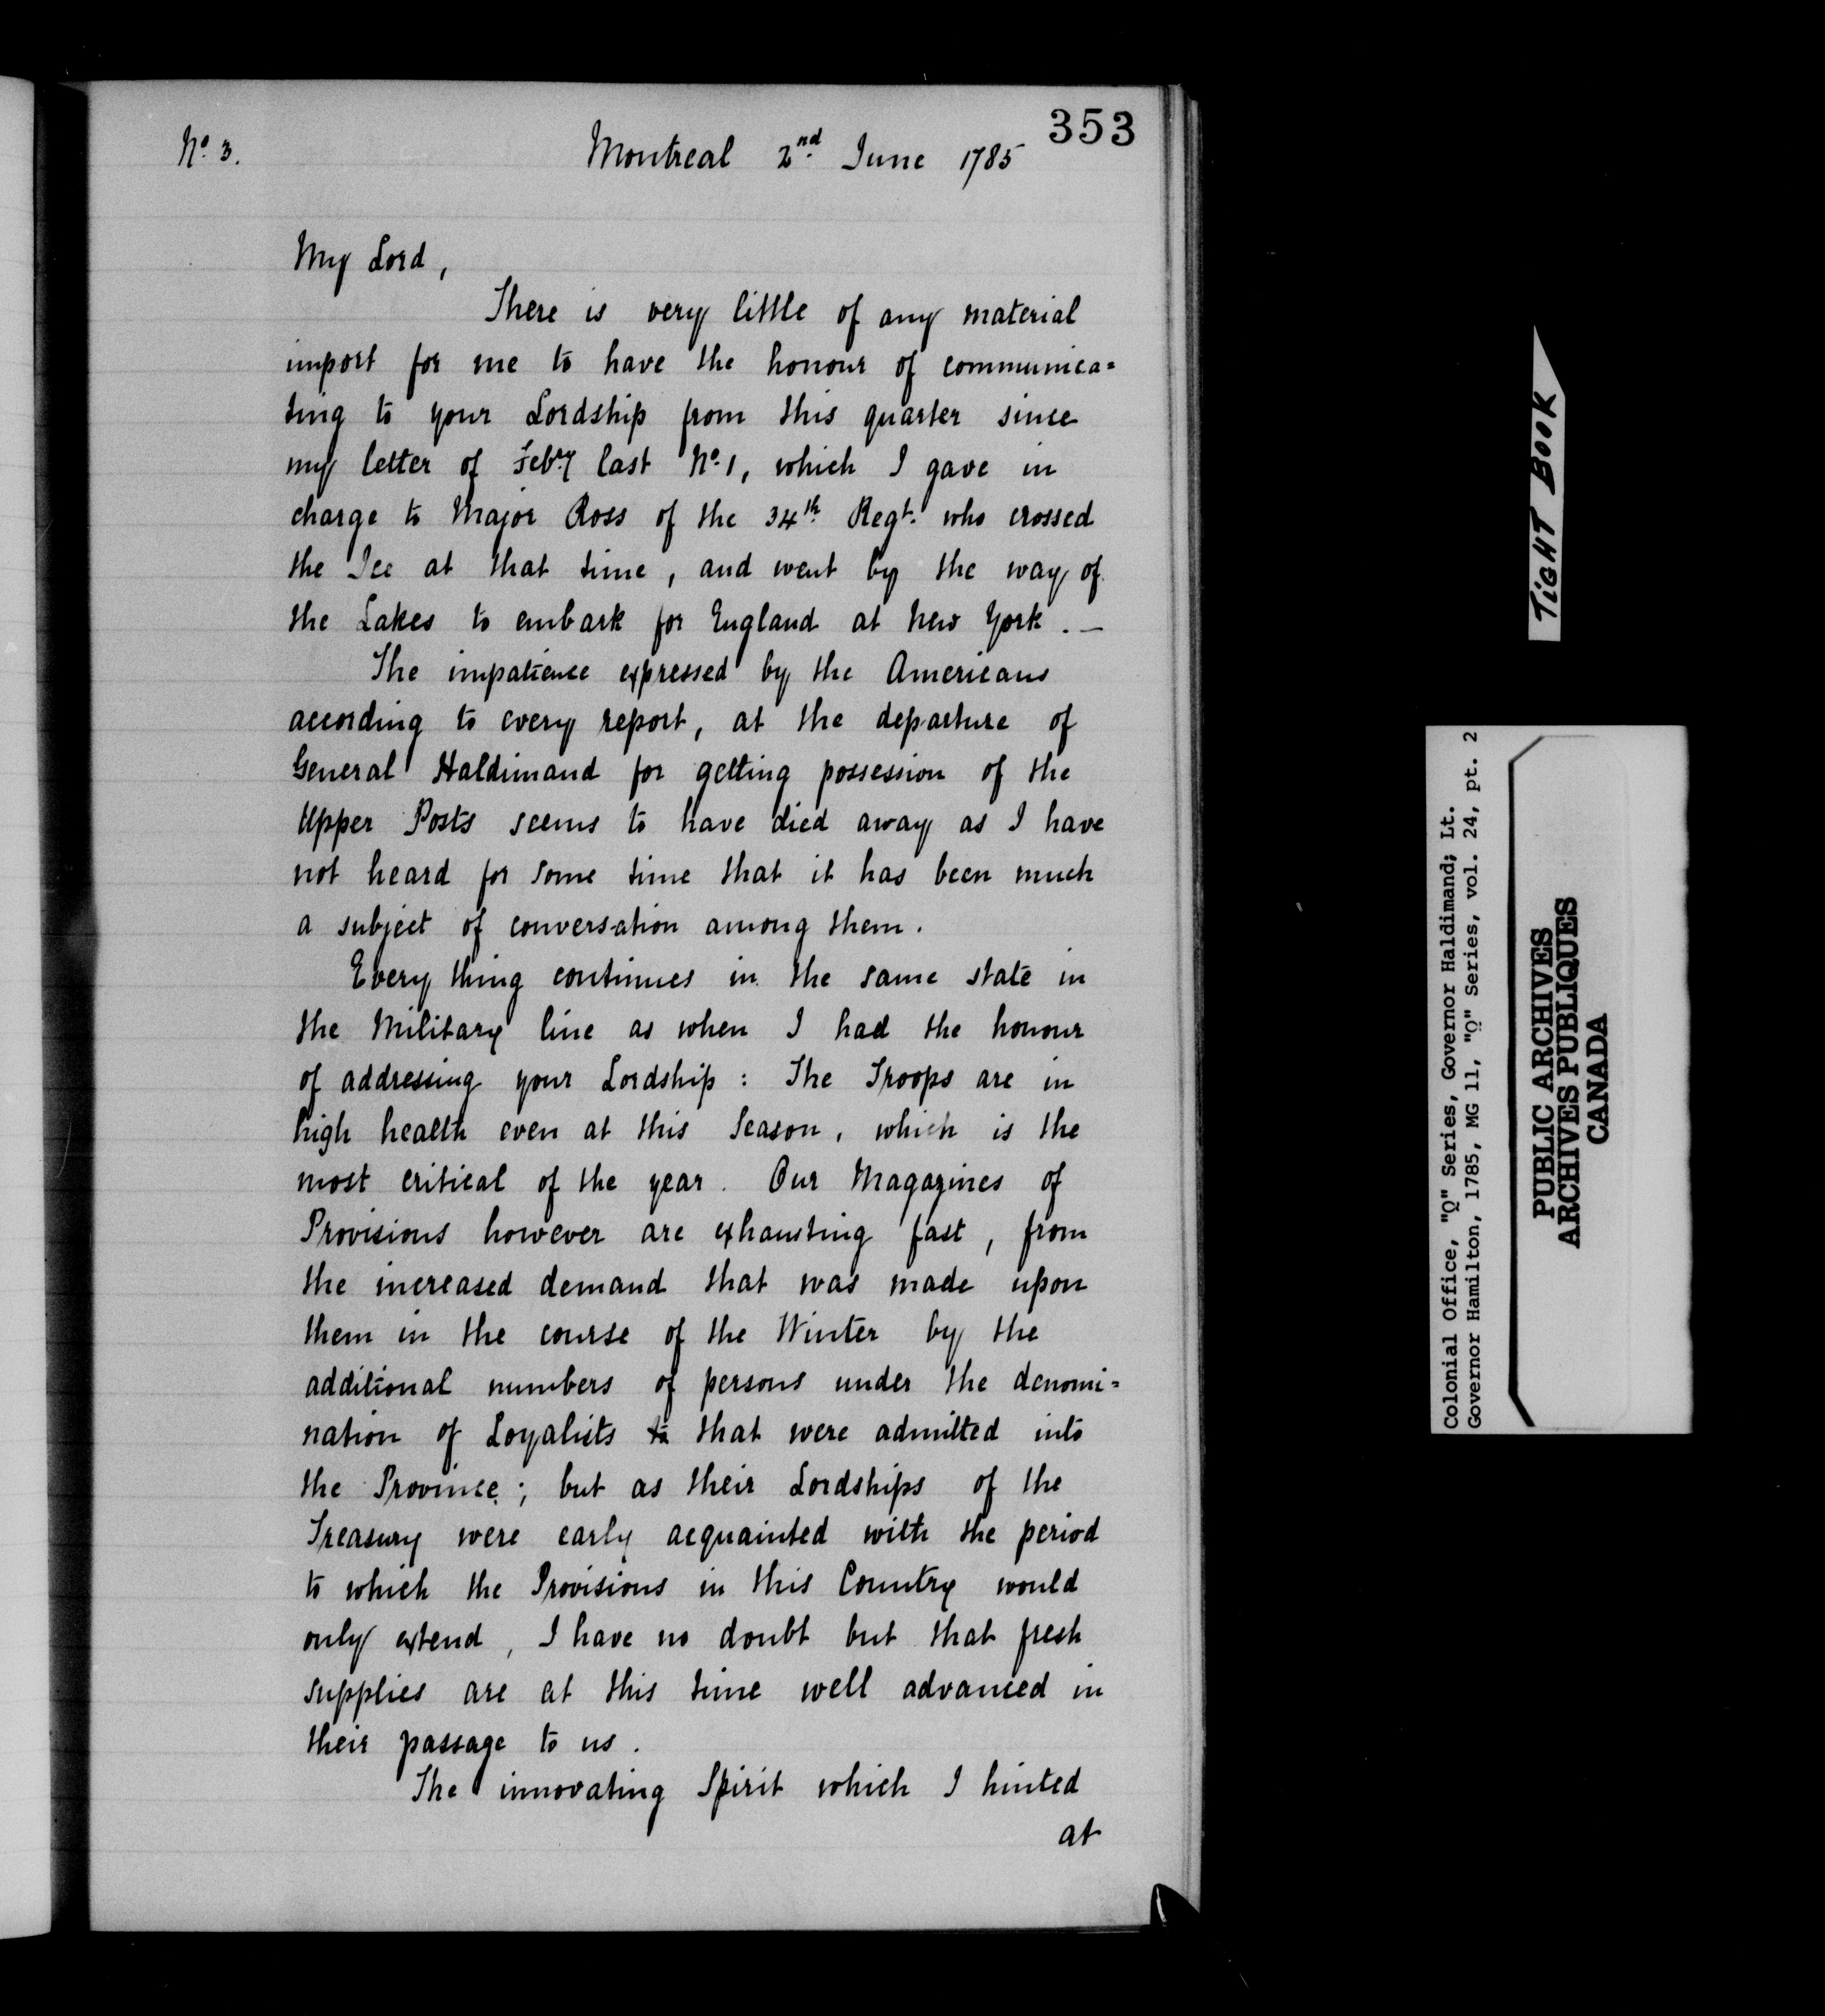 353
Nº 3.
Montreal 2nd June 1785
My Lord,
There is very little of any material
import for me to have the honour of communica=
ting to your Lordship from this quarter since
my letter of Febry last Nº 1, which I gave in
charge to Major Ross of the 34th Regt. who crossed
the Ice at that time, and went by the way of
the Lakes to embark for England at New York. —
The impatience expressed by the Americans
according to every report, at the departure of
General Haldimand for getting possession of the
Upper Posts seems to have died away as I have
not heard for some time that it has been much
a subject of conversation among them.
Every thing continues in the same state in
the Military line as when I had the honour
of addressing your Lordship : The Troops are in
high health even at this Season, which is the
most critical of the year. Our Magazines of
Provisions however are exhausting fast, from
the increased demand that was made upon
them in the course of the Winter by the
additional numbers of persons under the denomi=
nation of Loyalists to that were admitted into
the Province; but as their Lordships of the
Treasury were early acquainted with the period
to which the Provisions in this Country would
only extend, I have no doubt but that fresh
supplies are at this time well advanced in
their passage to us.
The innovating Spirit which I hinted
at
TIGHT BOOK
Colonial Office, "Q" Series, Governor Haldimand; Lt.
Governor Hamilton, 1785, MG 11, "Q" Series, vol. 24, pt. 2
PUBLIC ARCHIVES
ARCHIVES PUBLIQUES
CANADA